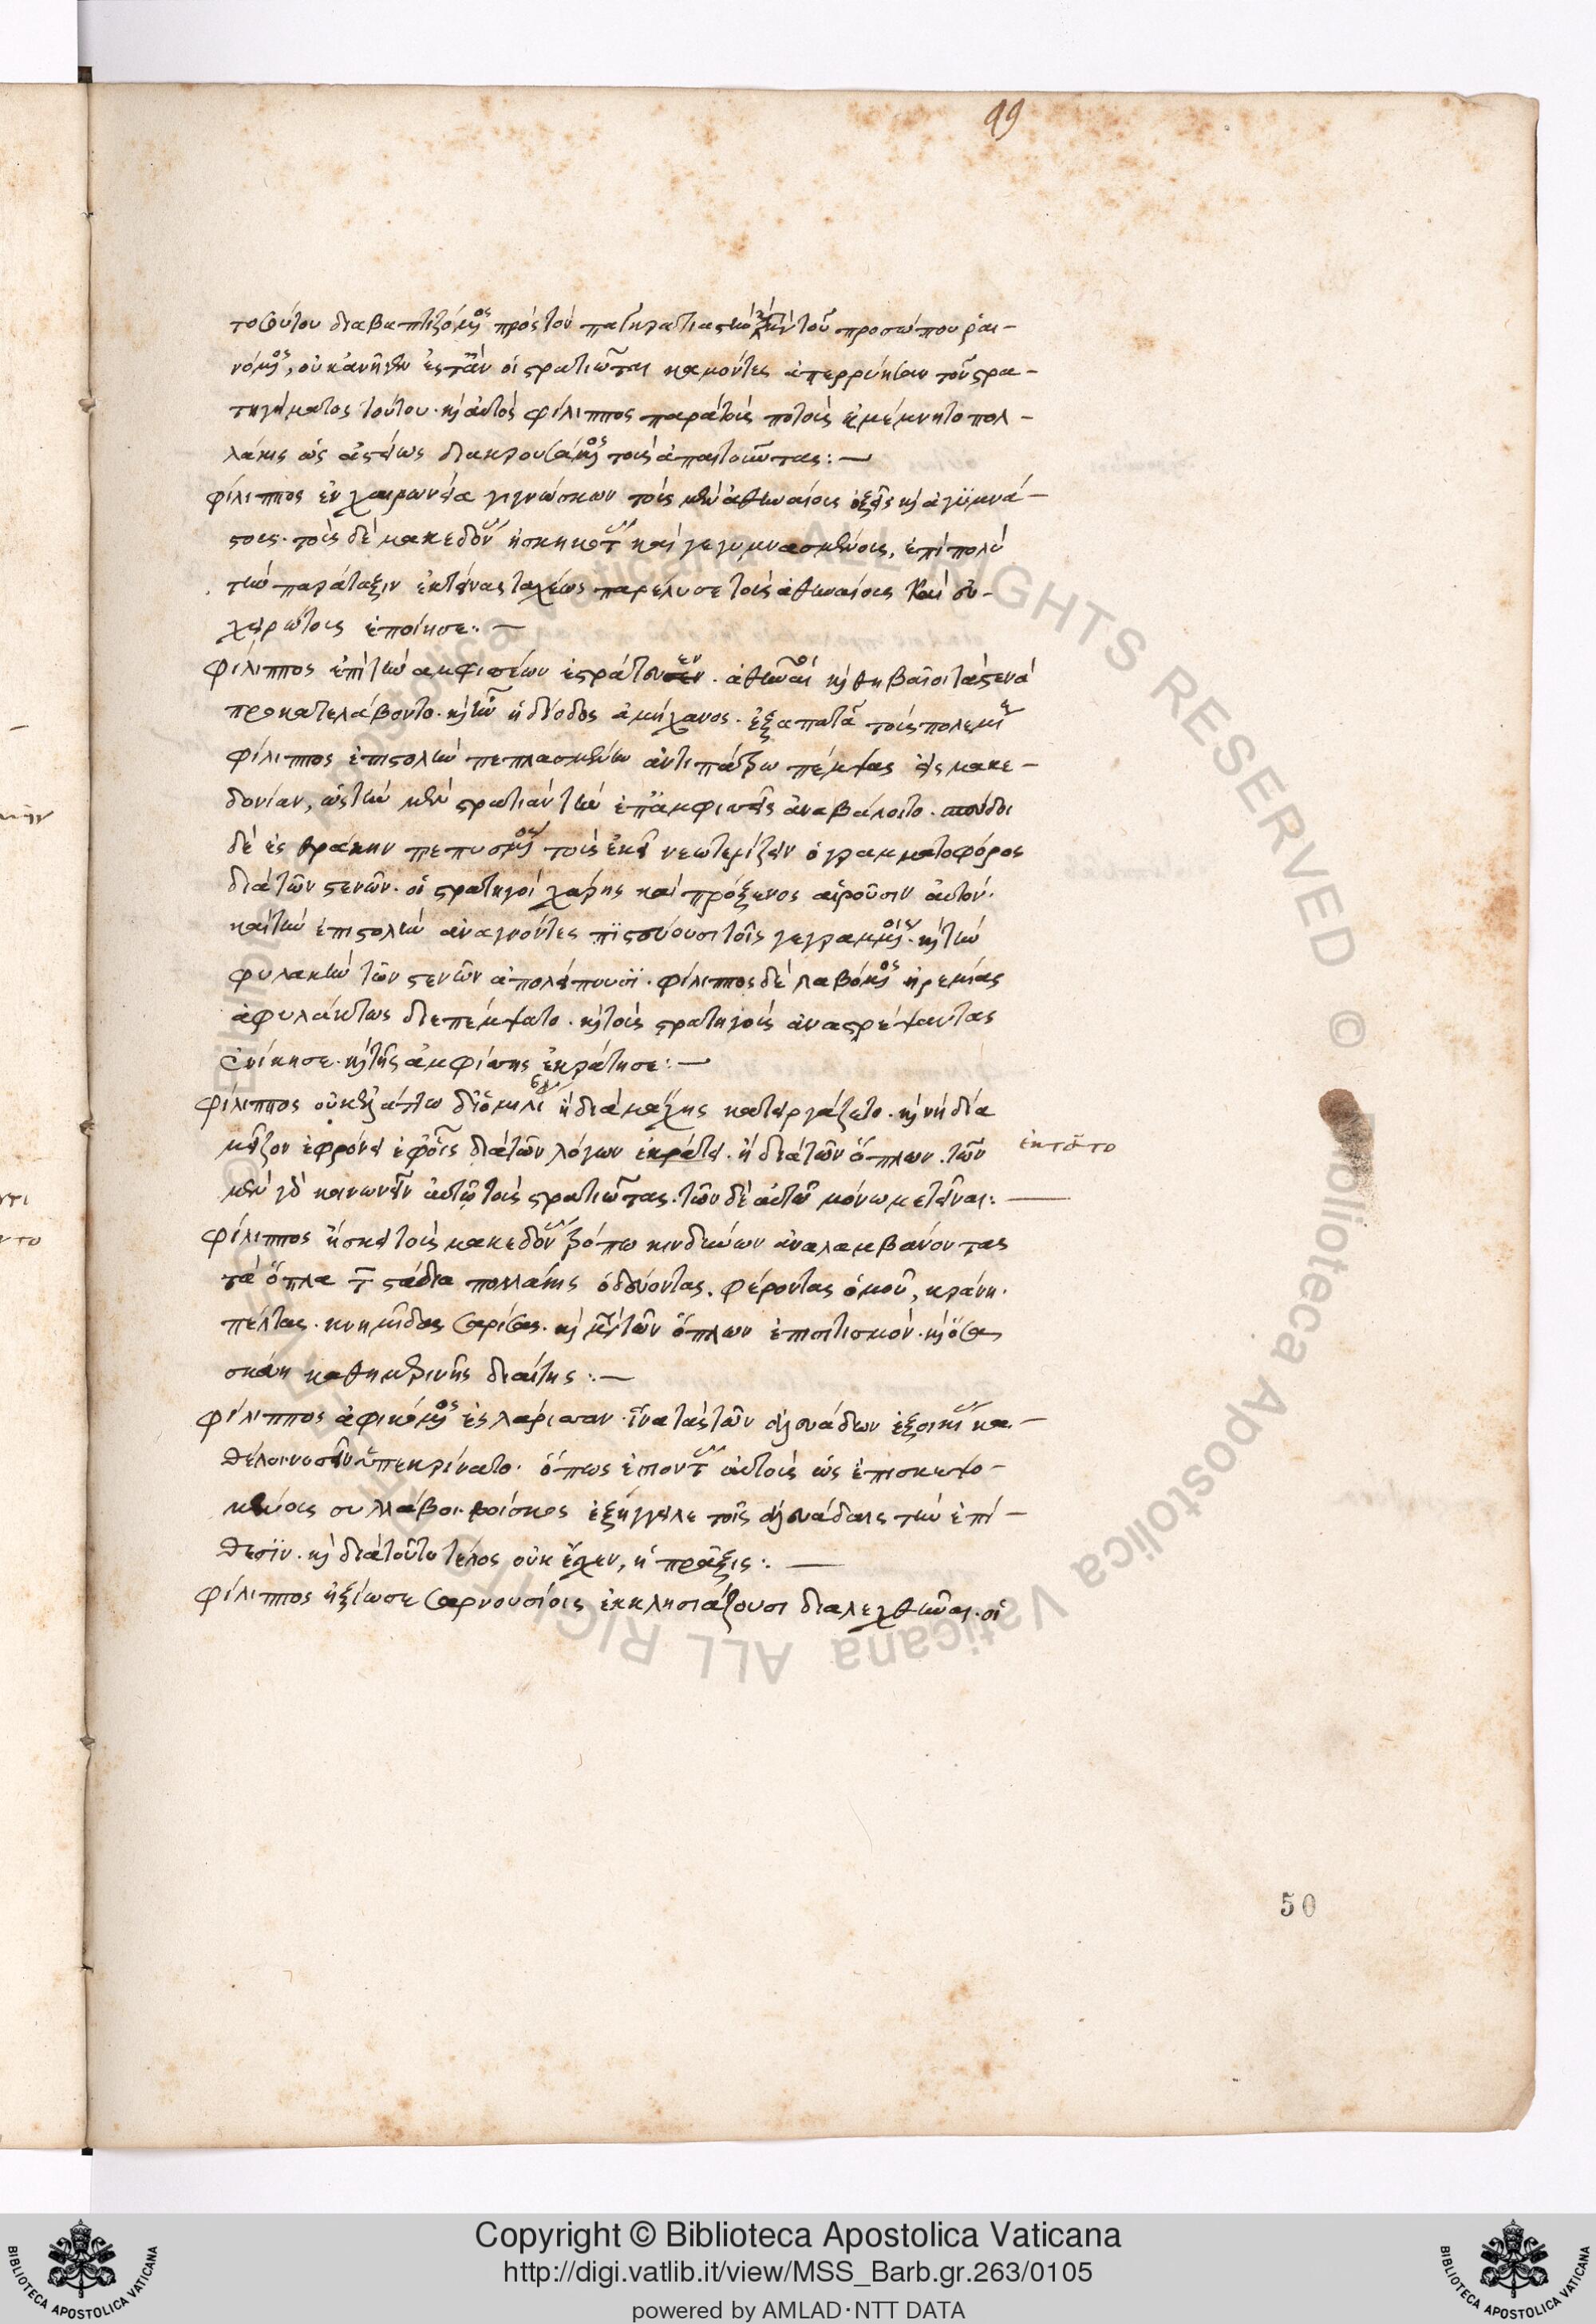 99
τοσούτου διαβαπτιζόμενος πρὸς τὸν παγκρατιαστὴν καὶ τοῦ προσώπου ῥαι-
νόμενος, οὐκ ἀνῆκεν ἔστ' ἂν οἱ στρατιῶται καμόντες ἀπερρύησαν τοῦ στρα-
τηγήματος τούτου. καὶ αὐτὸς φίλιππος παρὰ τοῖς πότοις ἐμέμνητο πολ-
λάκις ὡς ἀστείως διακρουσάμενος τοὺς ἀπαιτοῦντας:—
φίλιππος ἐν χαιρωνεία γιγνώσκων τοὺς μὲν ἀθηναίους ὀξεῖς καὶ ἀγυμνά-
στους. τοὺς δὲ μακεδόνας ἠσκηκότας καὶ γεγυμνασμένους, ἐπὶ πολὺ
τὴν παράταξιν ἐκτείνας ταχέως παρέλυσε τοὺς ἀθηναίους καὶ εὐ-
χειρώτους ἐποίησε:—
φίλιππος ἐπὶ τὴν ἀμφισσέων ἐστράτευεν. ἀθηναῖοι καὶ θηβαῖοι τὰ στενὰ
προκατελάβοντο. καὶ ἦν ἡ δίοδος ἀμήχανος. ἐξαπατᾶ τοὺς πολεμίους
φίλιππος ἐπιστολὴν πεπλασμένην ἀντιπάτρω πέμψας εἰς μακε-
δονίαν, ὡς τὴν μὲν στρατιὰν τὴν ἐπ' ἀμφισσεῖς ἀναβάλοιτο. σπεύδοι
δὲ ἐς θράκην πεπυσμένος τοὺς ἐκεῖ νεωτερίζειν ὁ γραμματοφόρος
διὰ τῶν στενῶν. οἱ στρατηγοὶ χάρης καὶ πρόξενος αἱροῦσιν αὐτόν.
καὶ τὴν ἐπιστολὴν ἀναγνόντες πιστεύουσι τοῖς γεγραμμένοις. καὶ τὴν
φυλακὴν τῶν στενῶν ἀπολείπουσι. φίλιππος δὲ λαβόμενος ἠρεμίας
ἀφυλάκτως διεπέμψατο. καὶ τοὺς στρατηγοὺς ἀναστρέψαντας
ἐνίκησε. καὶ τῆς ἀμφίσσης ἐκράτησε:—
φίλιππος οὐκ ἐλάττω δι' ὁμιλίας ἢ διὰ μάχης κατειργάζετο. καὶ νὴ δία
μεῖζον ἐφρόνει ἐφ' οἷς διὰ τῶν λόγων ἐκράτει. ἢ διὰ τῶν ὅπλων. τῶν
ἐκτᾶτο
μὲν γὰρ κοινωνεῖν αὐτῶ τοὺς στρατιώτας. τῶν δὲ αὐτῶ μόνω μετεῖναι:—
φίλιππος ἤσκει τοὺς μακεδόνας πρὸ τῶν κινδύνων ἀναλαμβάνοντας
τὰ ὅπλα τ στάδια πολλάκις ὁδεύοντας. φέροντας ὁμοῦ, κράνη.
πέλτας. κνημῖδας σαρίσας. καὶ μετὰ τῶν ὅπλων ἐπισιτισμόν. καὶ ὅσα
σκεύη καθημερινῆς διαίτης:—
φίλιππος ἀφικόμενος ἐς λάρισσαν. ἵνα τὰς τῶν ἀλευάδων ἐξ οἰκίας κα-
θέλοι νοσεῖν ὑπεκρίνατο. ὅπως ἐπιόντας αὐτοὺς ὡς ἐπισκεψο-
μένους συλλάβοι. βοίσκος ἐξήγγειλε τοῖς ἀλευάδαις τὴν ἐπί-
θεσιν. καὶ διὰ τοῦτο τέλος οὐκ ἔσχεν, ἡ πρᾶξις:—
φίλιππος ἠξίωσε σαρνουσίοις ἐκκλησιάζουσι διαλεχθῆναι. οἱ
50
Copyright © Biblioteca Apostolica Vaticana
http://digi.vatlib.it/view/MSS_Barb.gr.263/0105
powered by AMLAD·NTT DATA